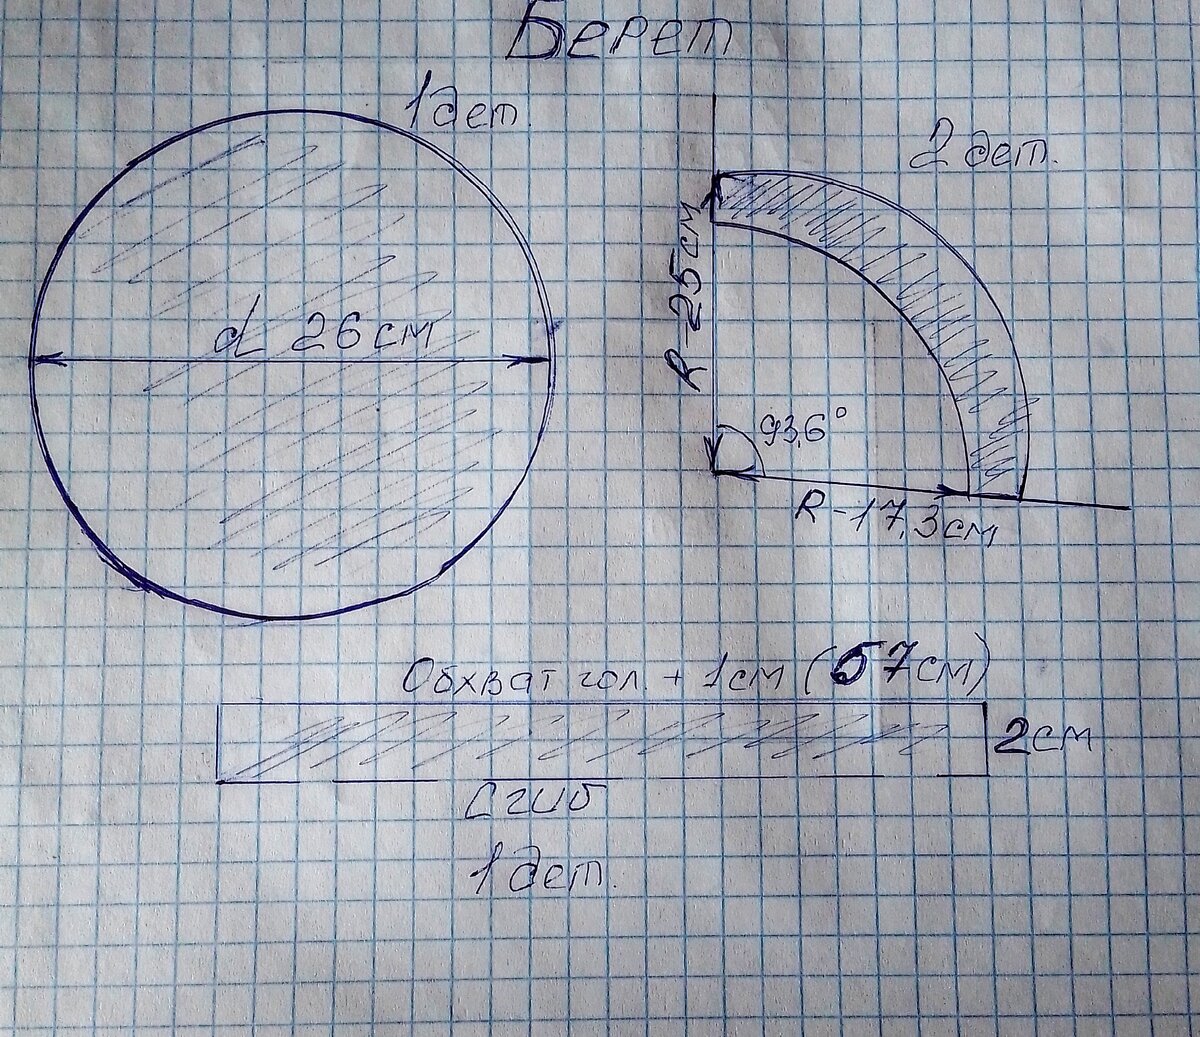 Берет
1 дет.
d 26 см
2 дет.
R-25см
93,6°
R-17,3см
Обхват гол. + 1см (57см)
2см
Сгиб
1 дет.